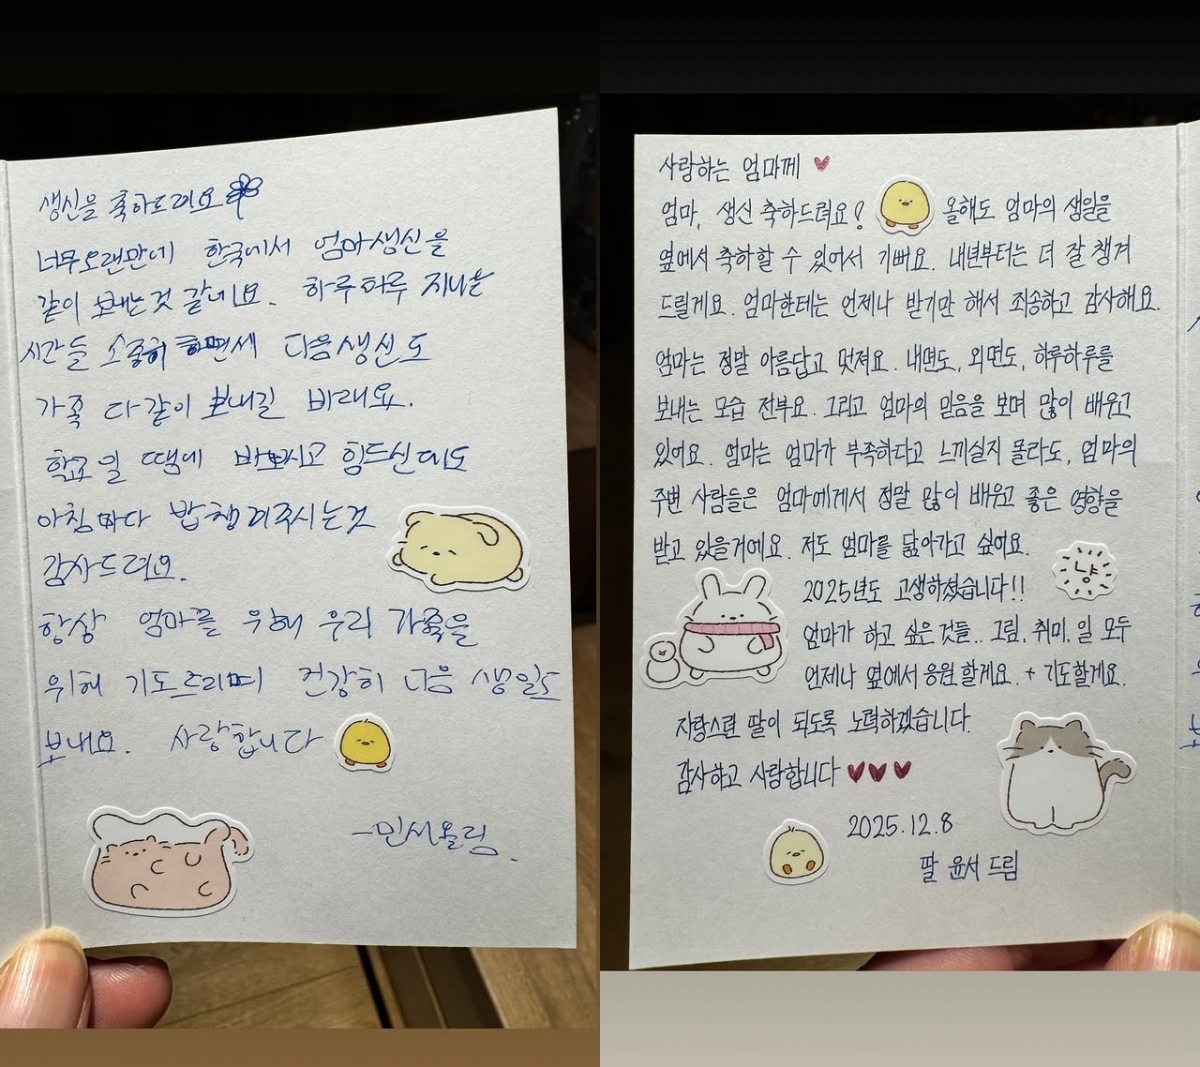 생신을 축하드려요
너무오랜만에 한국에서 엄마생신을
같이 보내는것 같네요. 하루하루 지나는
시간들 소중히 하면세 다음생신도
가족 다같이 보내길 바래요.
학교일 땜에 바쁘시고 힘드신데도
아침마다 밥챙겨주시는것
감사드려요.
항상 엄마를 위해 우리 가족을
위해 기도드리며 건강히 다음 생일도
보내요. 사랑합니다
-민서올림.
사랑하는 엄마께 ♥
엄마, 생신 축하드려요! 올해도 엄마의 생일을
옆에서 축하할 수 있어서 기뻐요. 내년부터는 더 잘 챙겨
드릴게요. 엄마한테는 언제나 받기만 해서 죄송하고 감사해요.
엄마는 정말 아름답고 멋져요. 내면도, 외면도, 하루하루를
보내는 모습 전부요. 그리고 엄마의 믿음을 보며 많이 배우고
있어요. 엄마는 엄마가 부족하다고 느끼실지 몰라도, 엄마의
주변 사람들은 엄마에게서 정말 많이 배우고 좋은 영향을
받고 있을거에요. 저도 엄마를 닮아가고 싶어요.
냥
2025년도 고생하셨습니다!!
엄마가 하고 싶은 것들.. 그림, 취미, 일 모두
언제나 옆에서 응원할게요. + 기도할게요.
자랑스런 딸이 되도록 노력하겠습니다.
감사하고 사랑합니다 ♥♥♥
2025.12.8
딸 윤서 드림